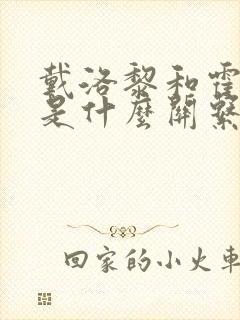 戴洛黎和霍
是什麼關繫
回家的小火車